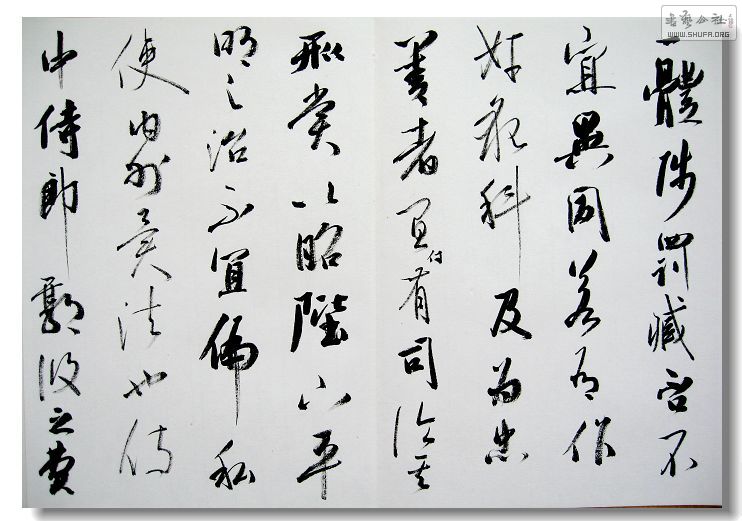 書藝公社
WWW.SHUFA.ORG
一體陟罰臧否不
宜異同若有作
奸犯科及為忠
善者宜付有司論其
刑賞以昭陛下平
明之治不宜偏私
使內外異法也侍
中侍郎郭攸之費